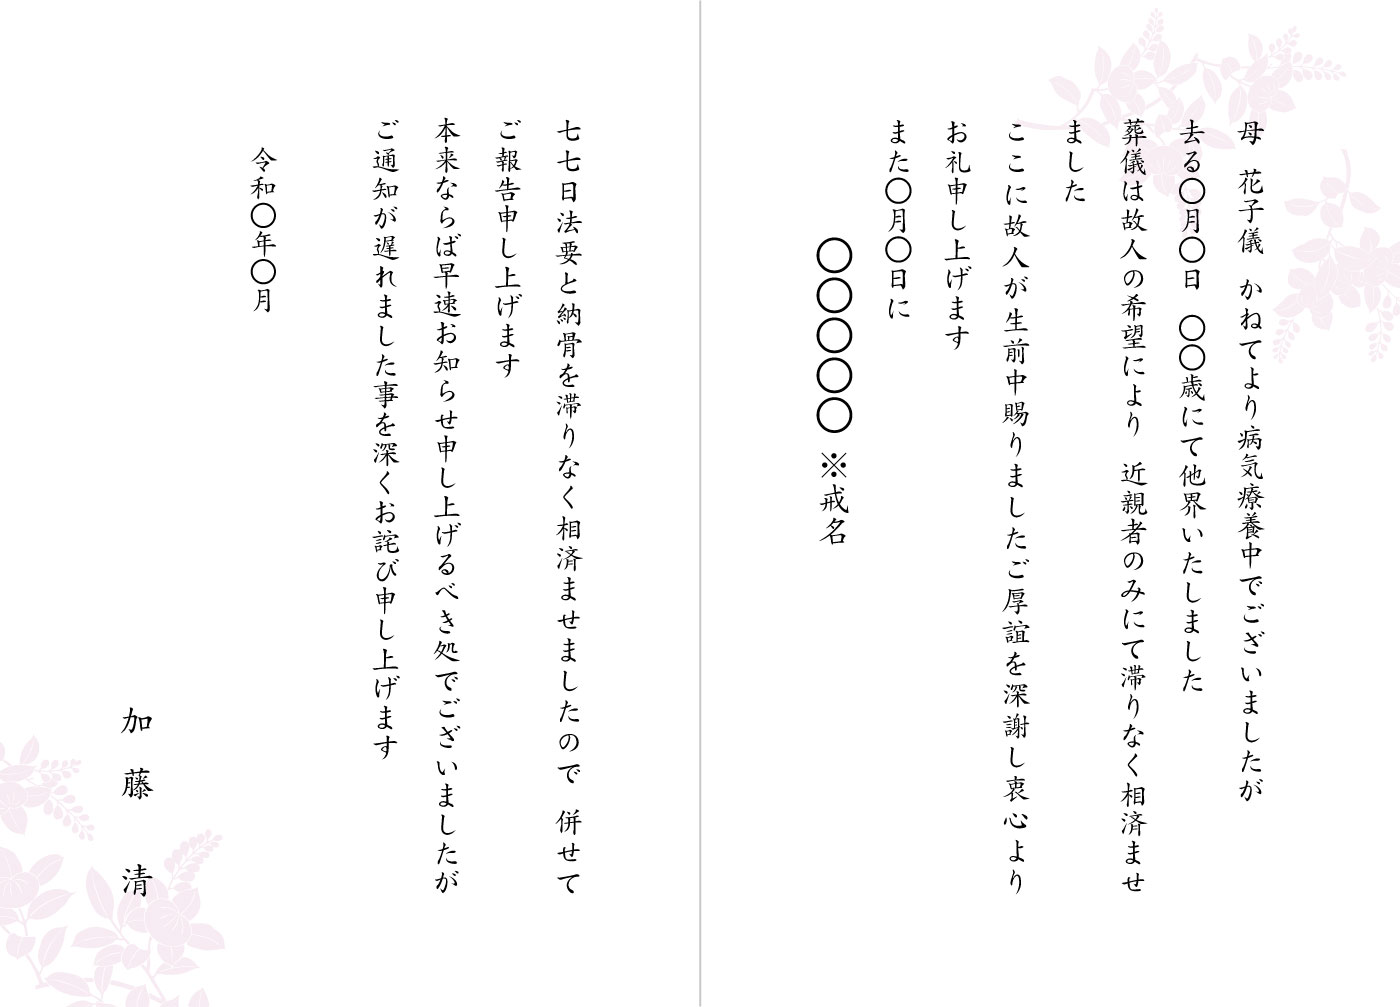 母 花子儀 かねてより病気療養中でございましたが
去る〇月〇日 〇〇歳にて他界いたしました
葬儀は故人の希望により 近親者のみにて滞りなく相済ませ
ました
ここに故人が生前中賜りましたご厚誼を深謝し衷心より
お礼申し上げます
また〇月〇日に
〇〇〇〇〇 ※戒名
七七日法要と納骨を滞りなく相済ませましたので 併せて
ご報告申し上げます
本来ならば早速お知らせ申し上げるべき処でございましたが
ご通知が遅れました事を深くお詫び申し上げます
令和〇年〇月
加藤 清